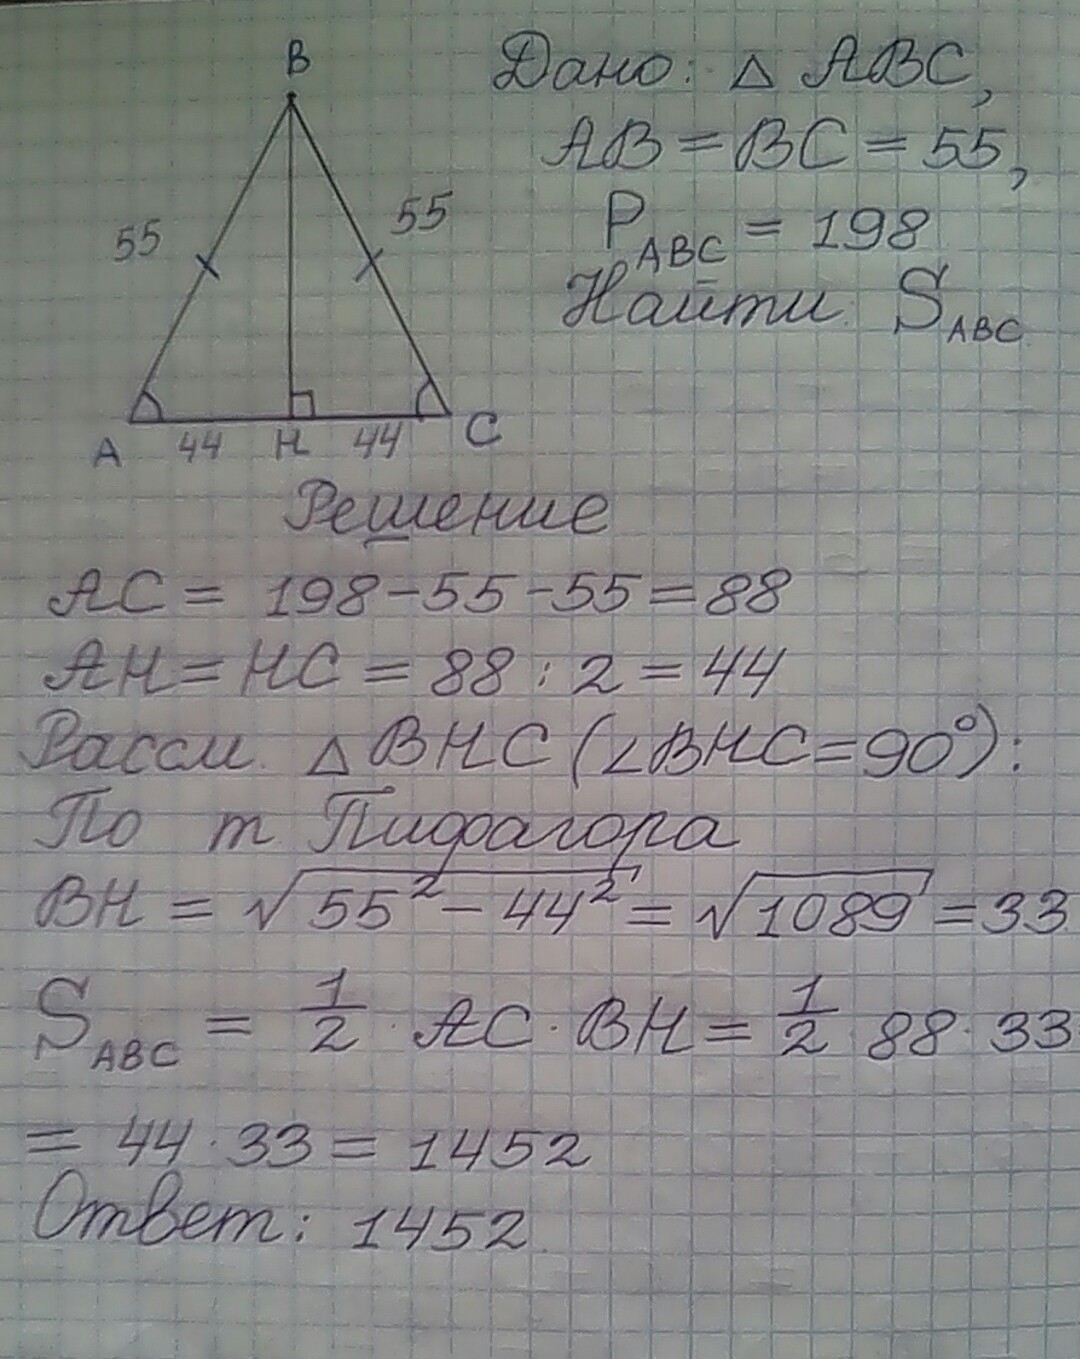 B
55
55
A 44 H 44 C
Дано: △ ABC,
AB = BC = 55,
P_ABC = 198
Найти: S_ABC
Решение
AC = 198 - 55 - 55 = 88
AH = HC = 88 : 2 = 44
Рассм. △ BHC (∠BHC = 90°):
По т Пифагора
BH = √55² - 44² = √1089 = 33
S_ABC = 1/2 · AC · BH = 1/2 · 88 · 33
= 44 · 33 = 1452
Ответ: 1452.